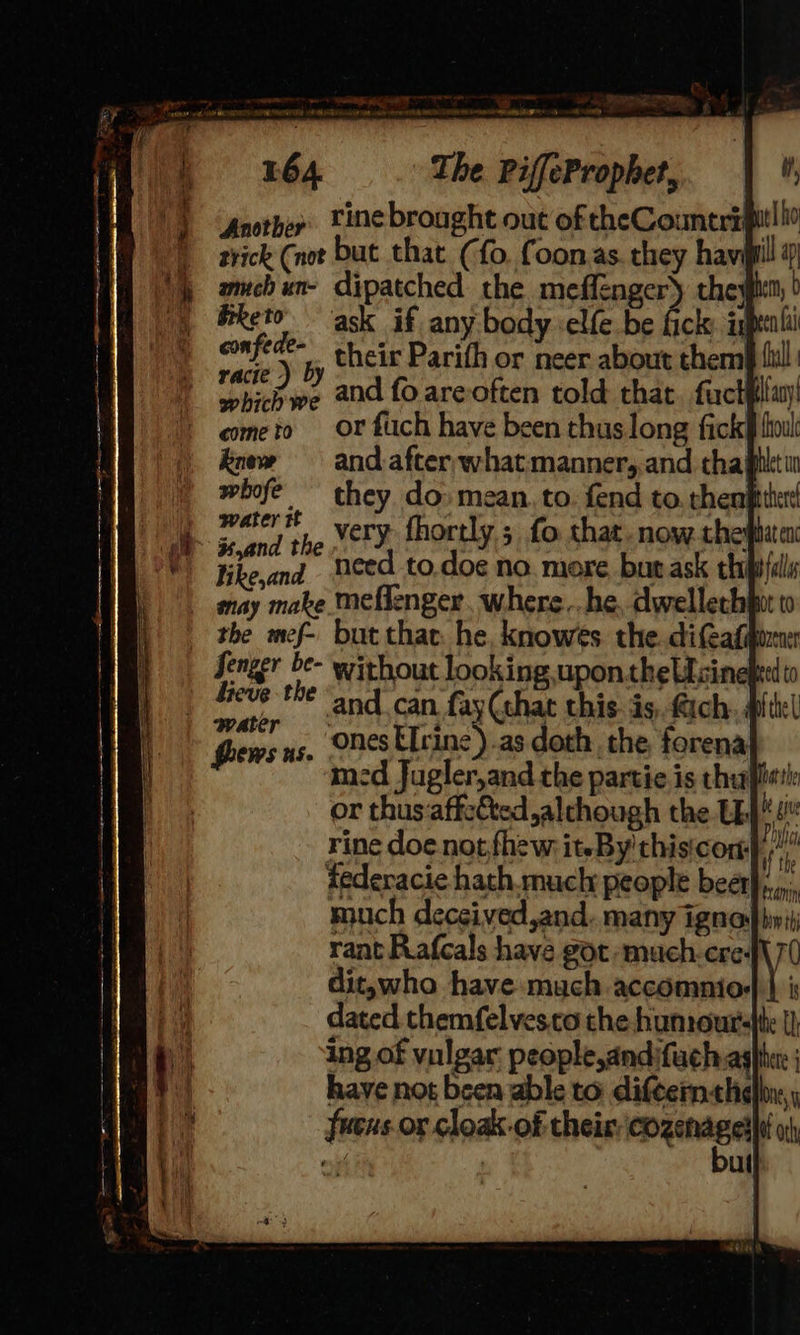 164 The PisseProphet,
Another
trick (not
much un-
like to
confede-
racie) by
which we
come to
know
whose
water it
is,and the
like,and
may make
the mes-
senger be-
lieve the
water
shews us.
rine brought out of theCountri
but that (so soon as they hav
dipatched the messenger) they
ask if any body else be sick i
their Parish or neer about them
and so are often told that such
or such have been thus long sick
and after what manner, and tha
they do mean to send to then
very shortly; so that now the
need to doe no more but ask th
messenger where he dwelleth
but that he knowes the diseas
without looking upon the Urine
and can say (that this is such
ones Urine) as doth the forena
med Jugler,and the partie is thu
or thus affected,although the U
rine doe not shew it. By this con
federacie hath much people bee
much deceived,and many igno
rant Rascals have got much cre
dit,who have much accomnio
dated themselves to the humour
ing of vulgar people,and such as
have not been able to discern the
fucus or cloak of their cozenage
but